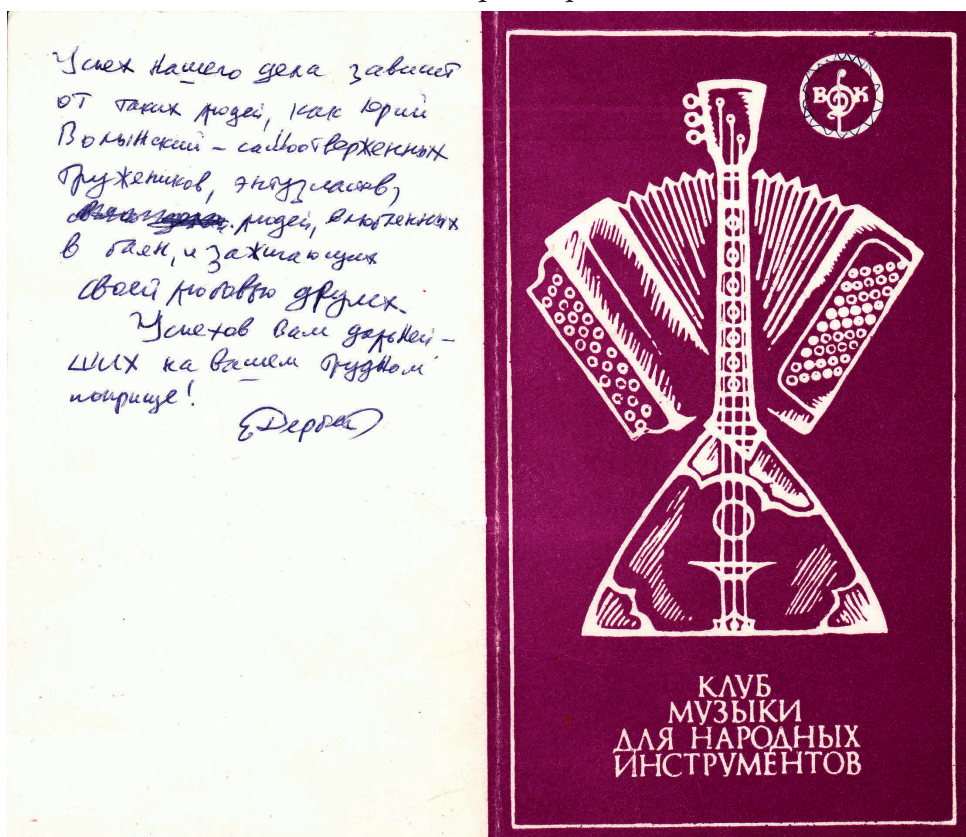 Успех нашего дела зависит
от таких людей, как Юрий
Волынский – самоотверженных
тружеников, энтузиастов,
людей, влюбленных
в баян, и зажигающих
своей любовью других.
Успехов Вам дальней-
ших на вашем трудном
поприще!
ВК
КЛУБ
МУЗЫКИ
ДЛЯ НАРОДНЫХ
ИНСТРУМЕНТОВ